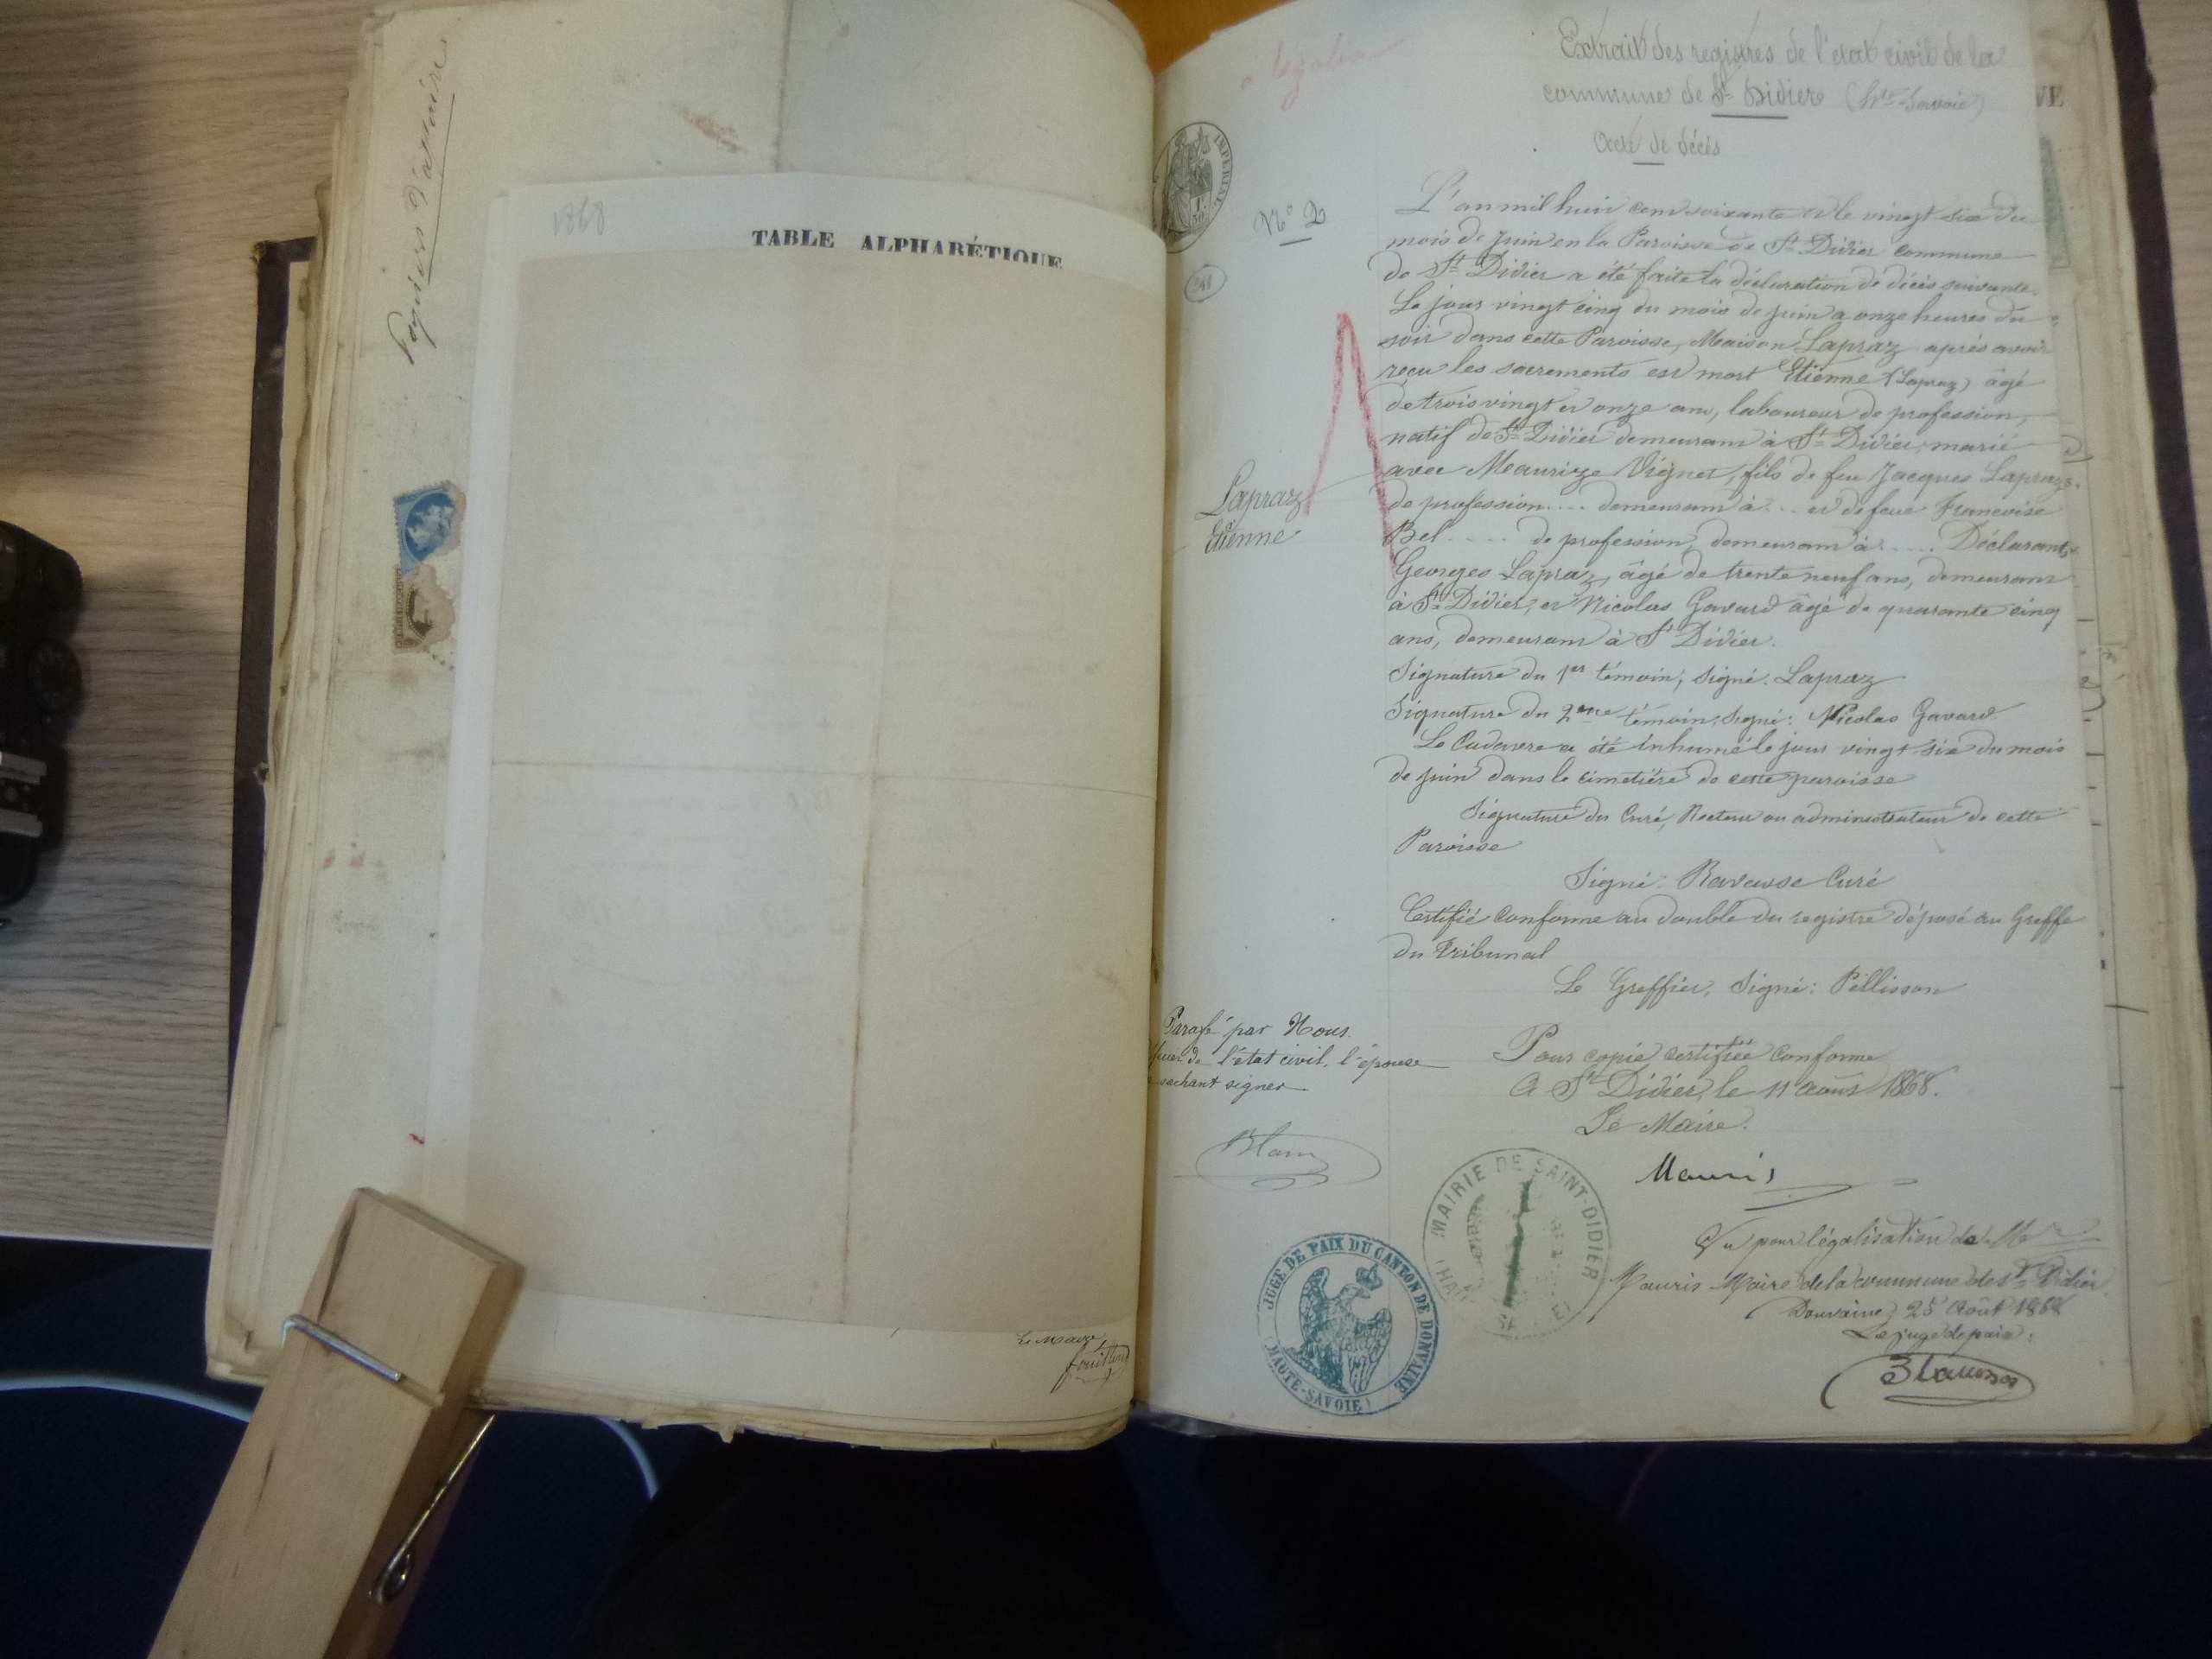 Papiers d'Annexe
1868
TABLE ALPHABÉTIQUE
Le Maire
à légaliser
Extrait des registres de l'état civil de la
commune de St Didier (Hte Savoie)
Acte de décès
IMPERIAL
1 F.
50
N° 2
L'an mil huit cent soixante et le vingt six du
mois de juin en la Paroisse de St Didier commune
de St Didier a été faite la déclaration de décès suivante.
Le jour vingt cinq du mois de juin a onze heures du
soir dans cette Paroisse, Maison Lapraz après avoir
reçu les sacrements est mort Etienne (Lapraz) âgé
de trois vingt et onze ans, laboureur de profession,
natif de St Didier demeurant à St Didier, marié
avec Maurize Vignet, fils de feu Jacques Lapraz.
de profession .... demeurant à ... et de feue Francoise
Bel .... de profession, demeurant à ..... Déclarants
Georges Lapraz, âgé de trente neuf ans, demeurant
à St Didier, et Nicolas Gavard âgé de quarante cinq
ans, demeurant à St Didier.
Lapraz
Etienne
Signature du 1er témoin, signé: Lapraz
Signature du 2me témoin, signé: Nicolas Gavard
Le Cadavre a été inhumé le jour vingt six du mois
de juin dans le cimetière de cette paroisse
Signature du Curé, Recteur ou administrateur de cette
Paroisse
Signé: Ravasse Curé
Certifié conforme au double du registre déposé au Greffe
du Tribunal
Le Greffier, Signé: Pellisson
Parafé par Nous.
de l'état civil, l'épouse
sachant signer
Pour copie certifiée conforme
A St Didier, le 11 août 1868.
Le Maire.
Mauris
MAIRIE DE SAINT-DIDIER
JUGE DE PAIX DU CANTON DE DONVAINE
(HAUTE-SAVOIE)
Vu pour légalisation de Mr
Mauris Maire de la commune de St Didier
Douvaine, 25 Août 1868
Le juge de paix: